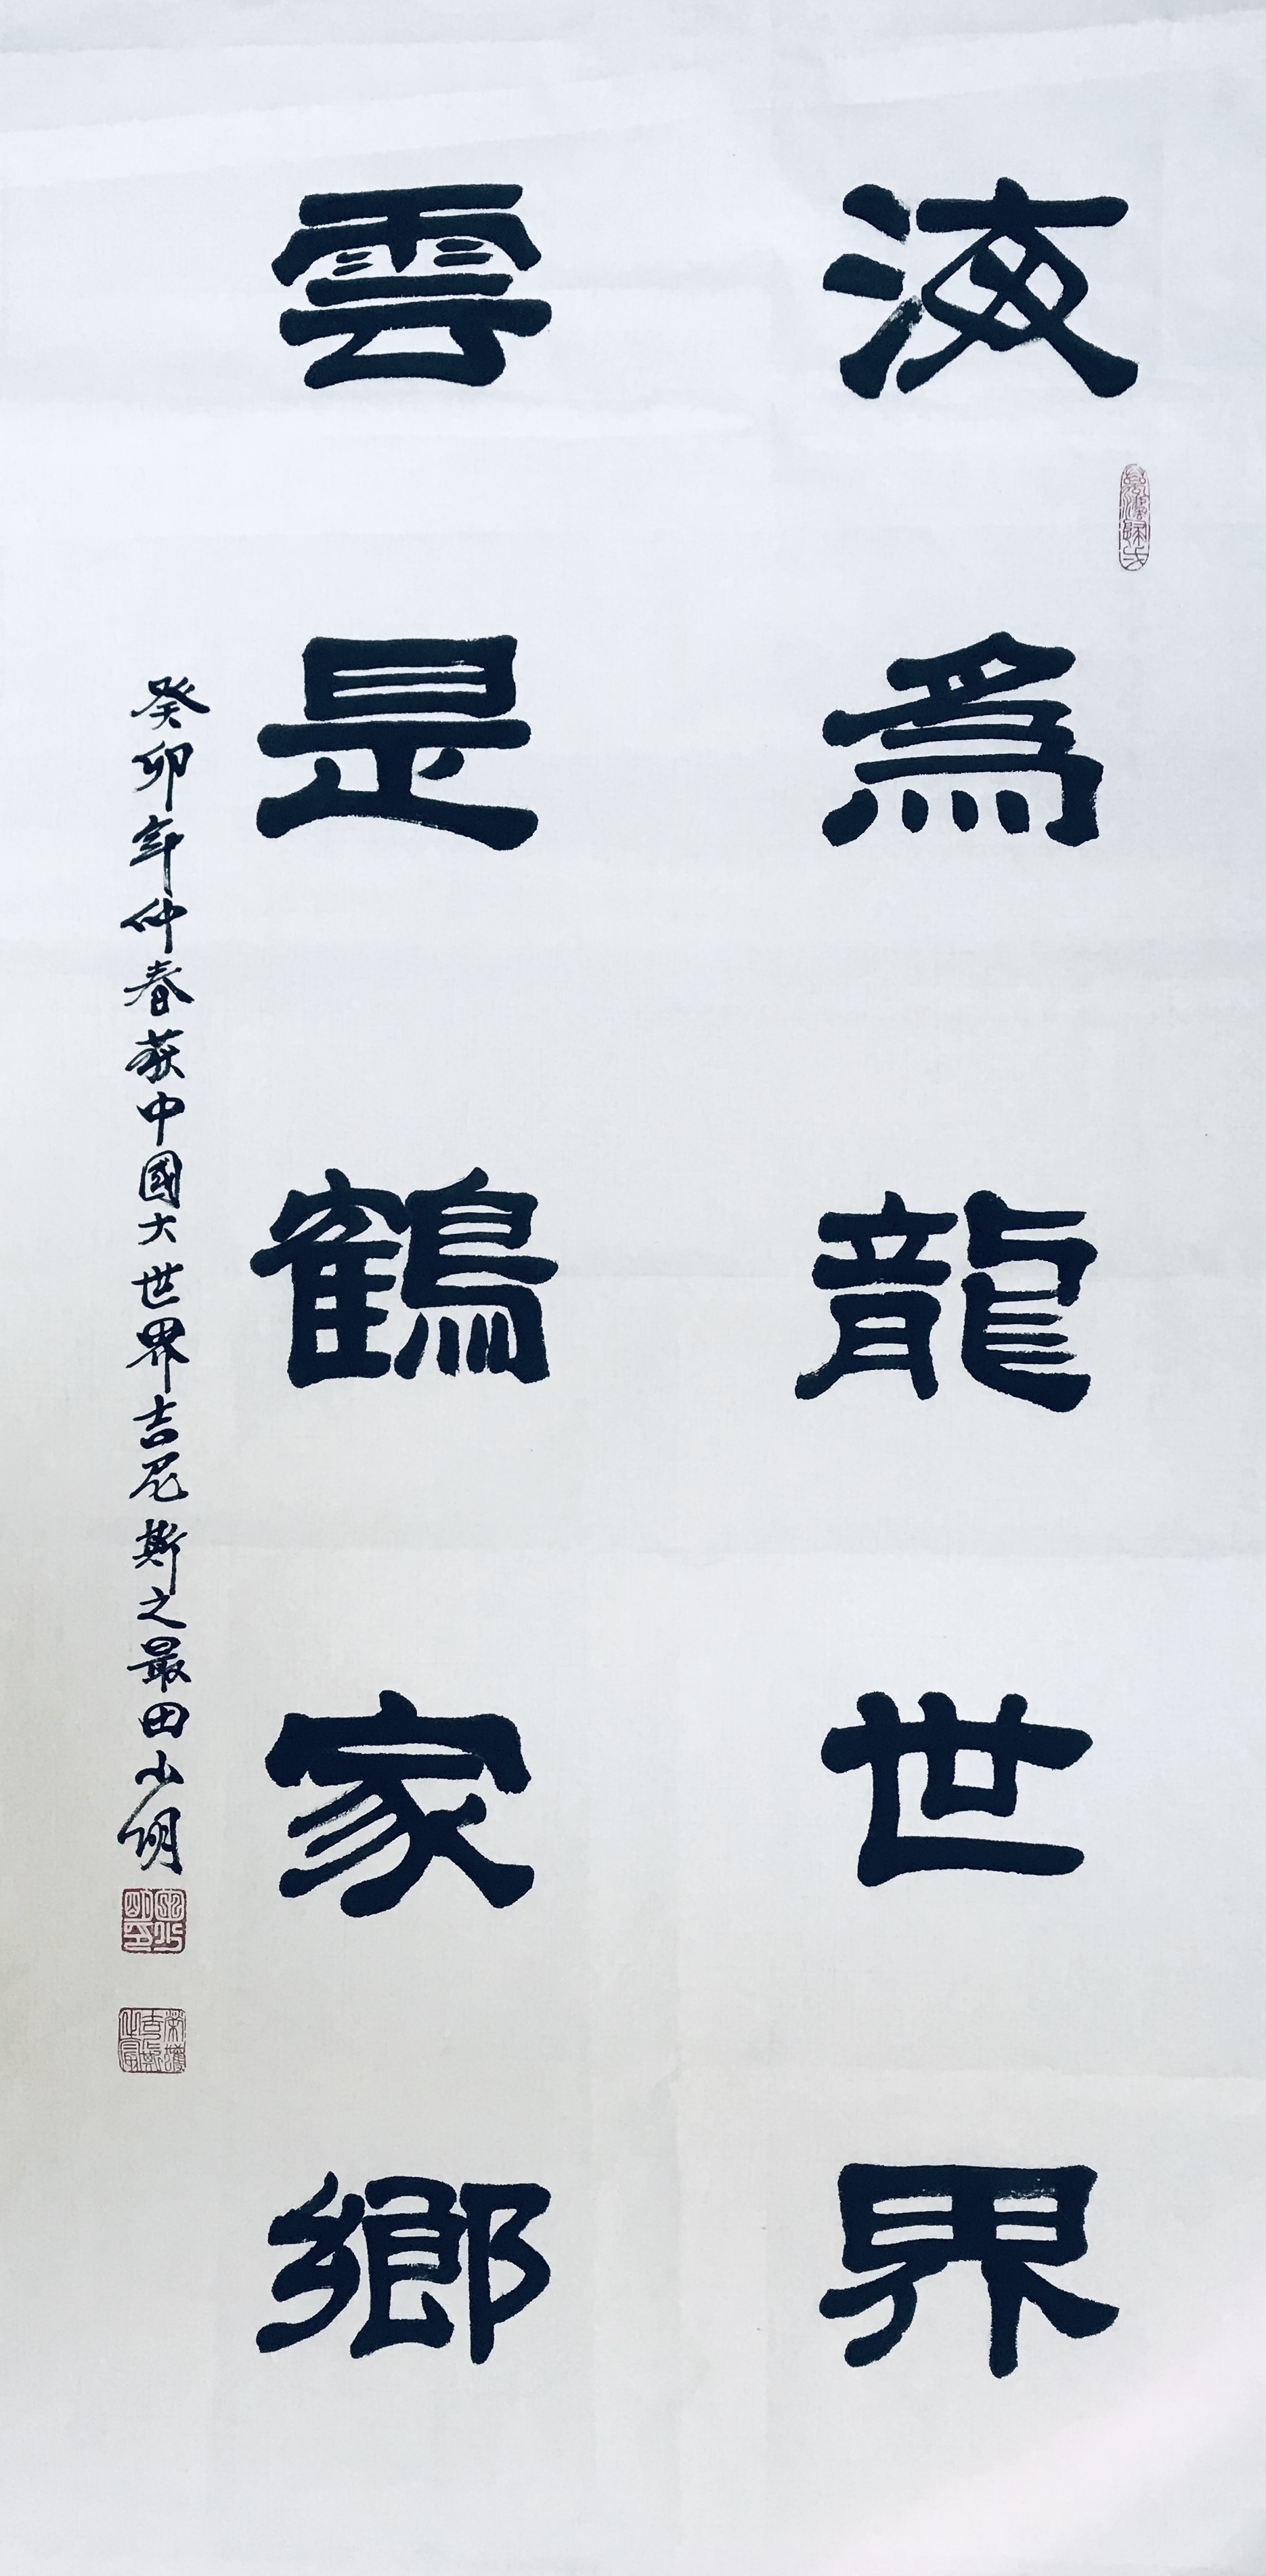 海為龍世界
雲是鶴家鄉
癸卯年仲春荻中國大世界吉尼斯之最田少明